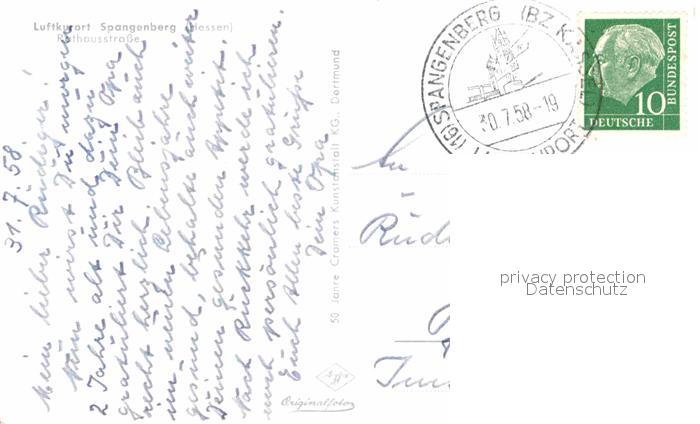 Luftkurort Spangenberg (Hessen)
Rathausstraße
31.7.58.
Mein lieber Rüdiger!
Nun wirst Du morgen
2 Jahre alt und dazu
gratuliert Dir Dein Opa
recht herzlich. Bleib auch
im neuen Lebensjahre
gesund, behalte auch weiter
Deinen gesunden Appetit.
Nach Rückkehr werde ich
noch persönlich gratulieren.
Euch allen beste Grüße
Dein Opa
50 Jahre Cramers Kunstanstalt KG, Dortmund
Originalfoto
(16) SPANGENBERG (BZ KASSEL)
30.7.58-19
LUFTKURORT
10
DEUTSCHE
BUNDESPOST
An
Rüdi
privacy protection
Datenschutz